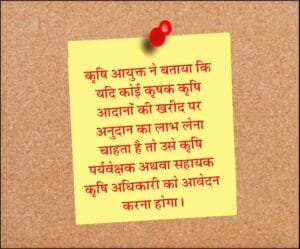 कृषि आयुक्त ने बताया कि
यदि कोई कृषक कृषि
आदानों की खरीद पर
अनुदान का लाभ लेना
चाहता है तो उसे कृषि
पर्यवेक्षक अथवा सहायक
कृषि अधिकारी को आवेदन
करना होगा।